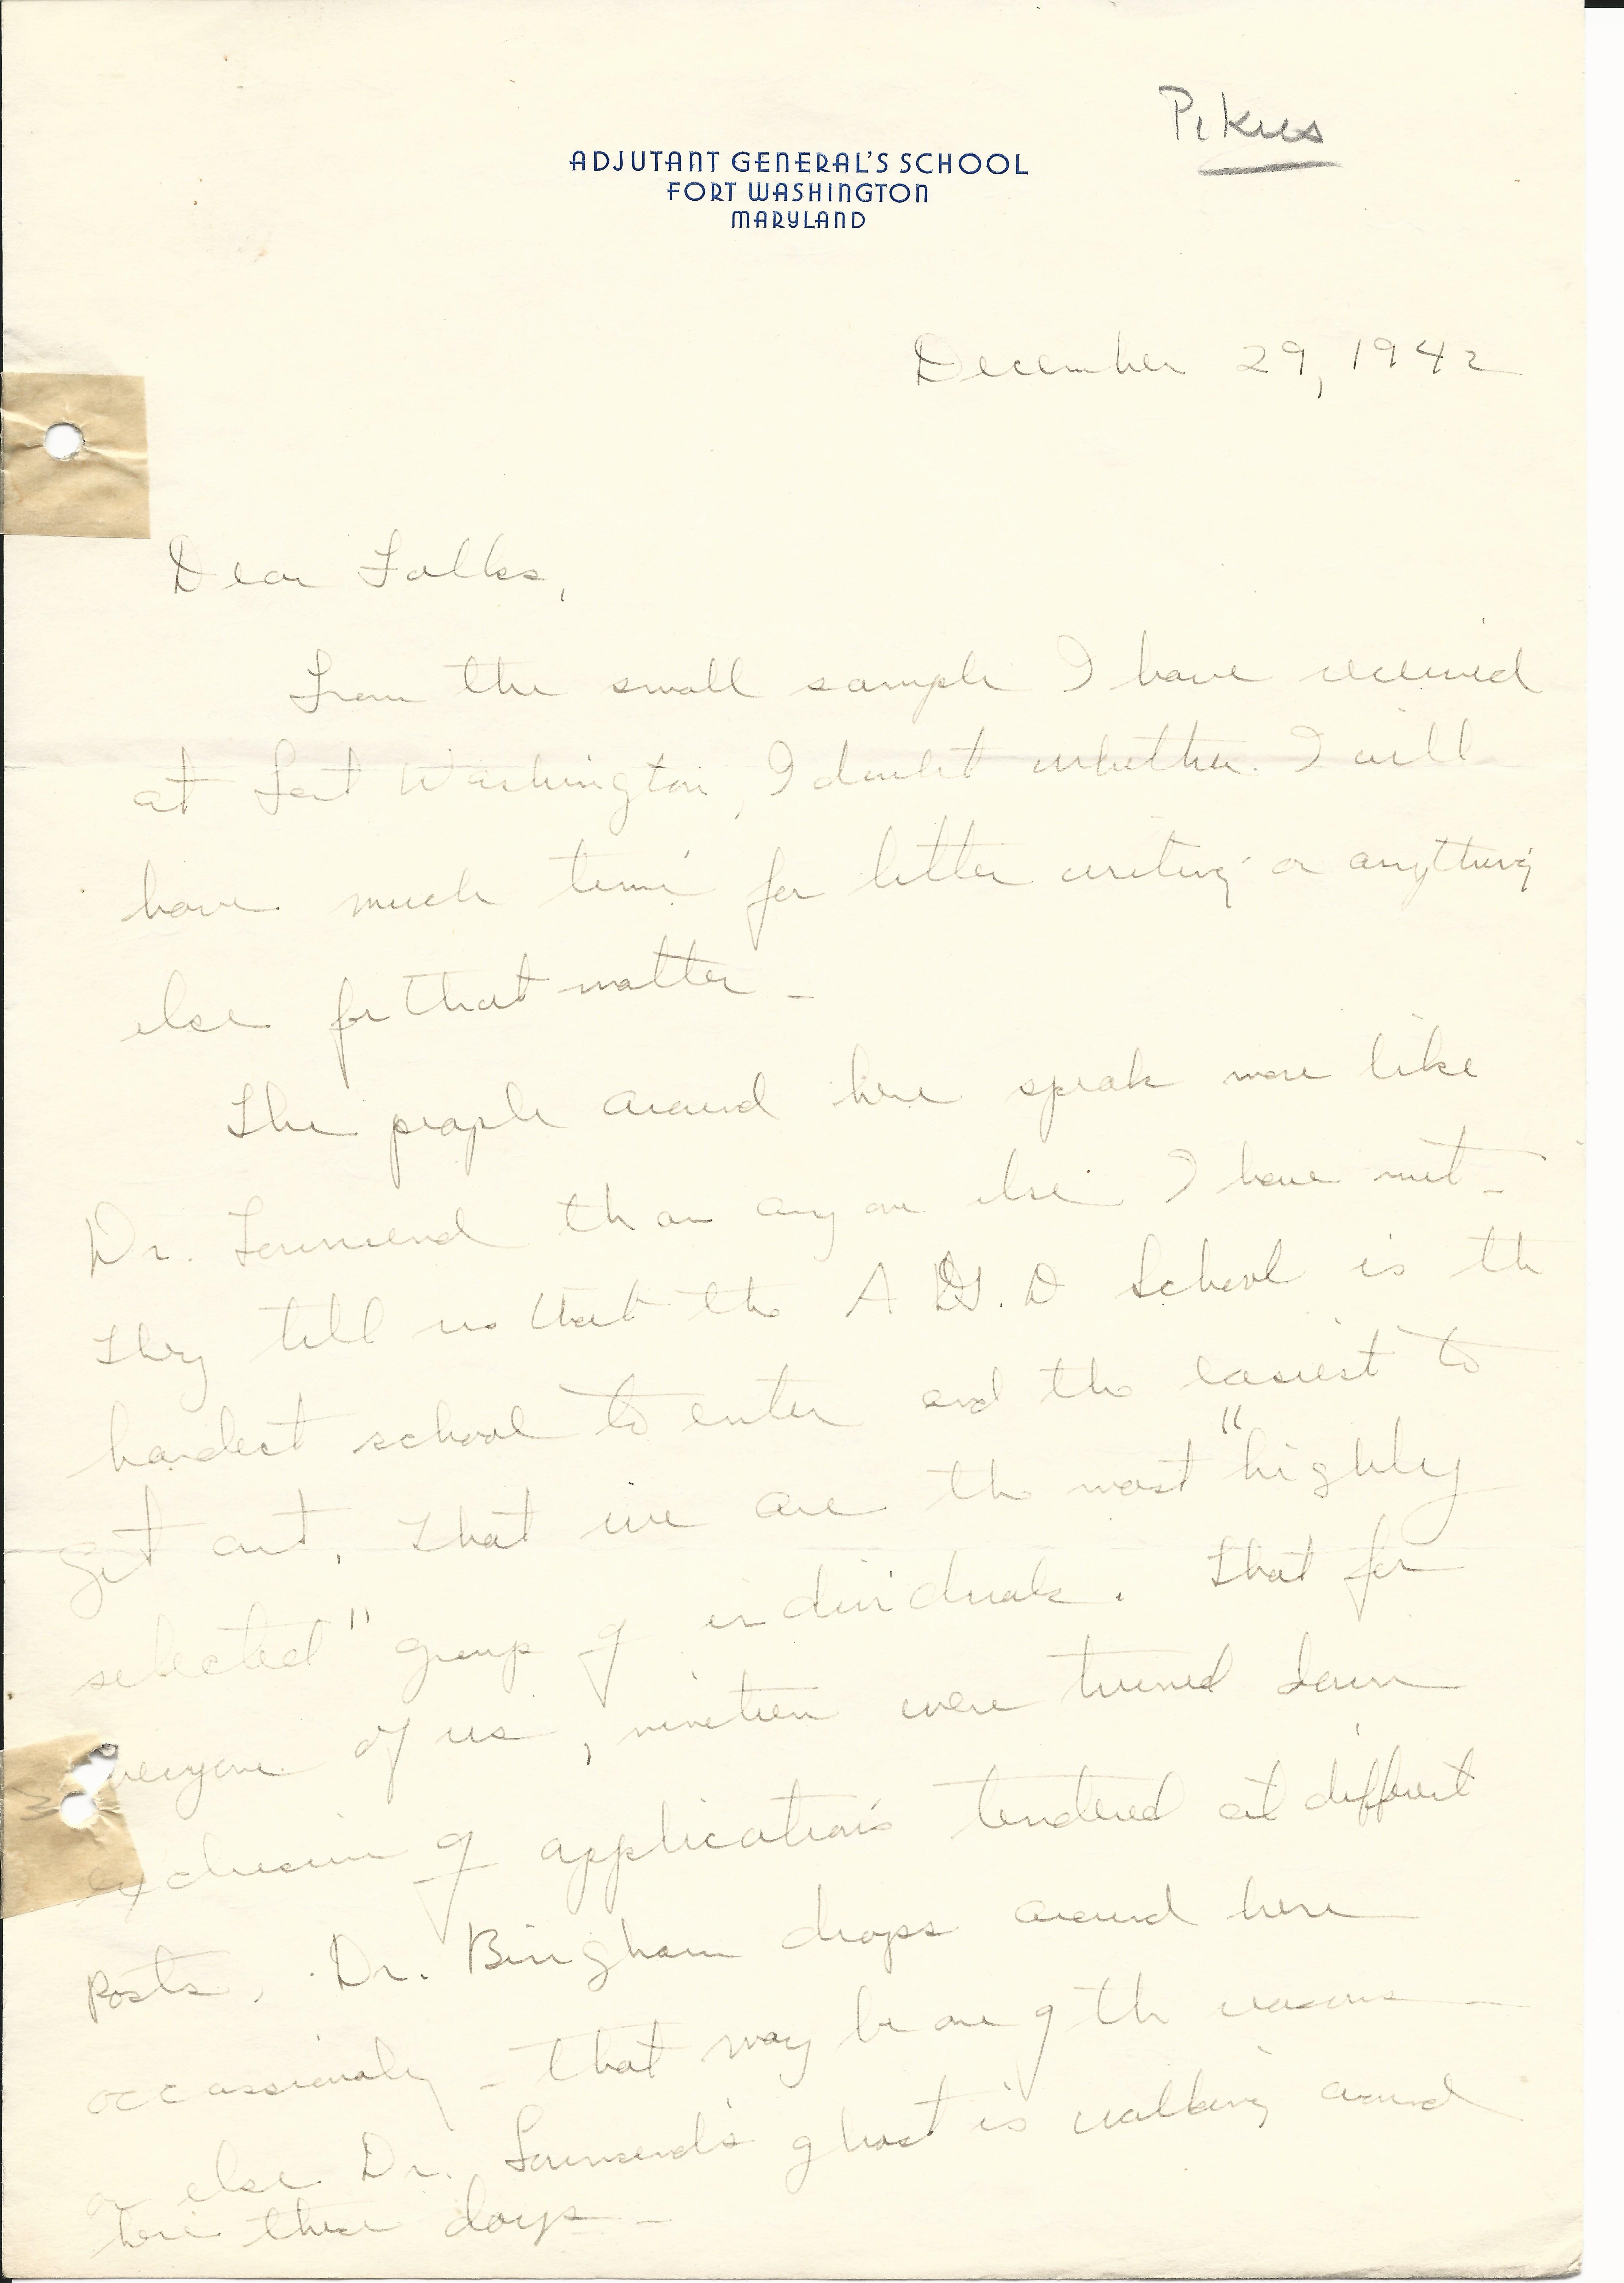 Pikus
ADJUTANT GENERAL'S SCHOOL
FORT WASHINGTON
MARYLAND
December 29, 1942
Dear Folks,
From the small sample I have received
at Fort Washington, I doubt whether I will
have much time for letter writing or anything
else for that matter -
The people around here speak more like
Dr. Townsend than anyone else I have met -
They tell us that the A G. D School is the
hardest school to enter and the easiest to
get out, that we are the most "highly
selected" group of individuals. That for
everyone of us, nineteen were turned down
exclusive of applications tendered at different
Posts. Dr. Bingham drops around here
occassionaly - that may be one of the reasons
or else Dr. Townsend's ghost is walking around
here these days -